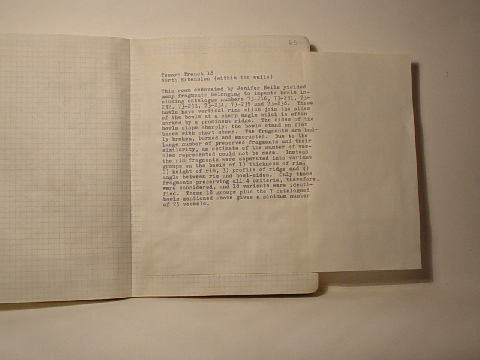 65
Tesoro Trench 18
North Extension (within the walls)
This room excavated by Jenifer Neils yielded
many fragments belonging to impasto bowls in-
cluding catalogue numbers 73-216, 73-231, 73-
232, 73-233, 73-234, 73-235 and 73-236. These
bowls have vertical rims which join the sides
of the bowls at a sharp angle which is often
marked by a prominent ridge. The sides of the
bowls slope sharply; the bowls stand on flat
bases with short stems. The fragments are bad-
ly broken, burned and encrusted. Due to the
large number of preserved fragments and their
similarity, an estimate of the number of ves-
sels represented could not be made. Instead
the rim fragments were separated into variant
groups on the basis of 1) thickness of rim,
2) height of rim, 3) profile of ridge and 4)
angle between rim and bowl-sides. Only those
fragments preserving all 4 criteria, therefore,
were considered, and 18 variants were identi-
fied. These 18 groups plus the 7 catalogued
bowls mentioned above gives a minimum number
of 25 vessels.